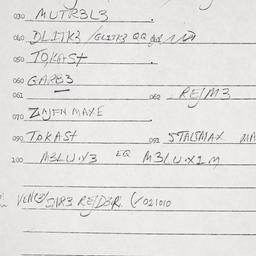 030 MUTR3L3
040 DLITK3 / GLITK3 QQ
050 TOKASt
060 GARB3
061 062 REJM3
070 ZAJEN MAXE
090 TOKASt 091 STALSMAX MA
100 M3LU.V3 EQ M3LU.X1M
REJD3R (/021010